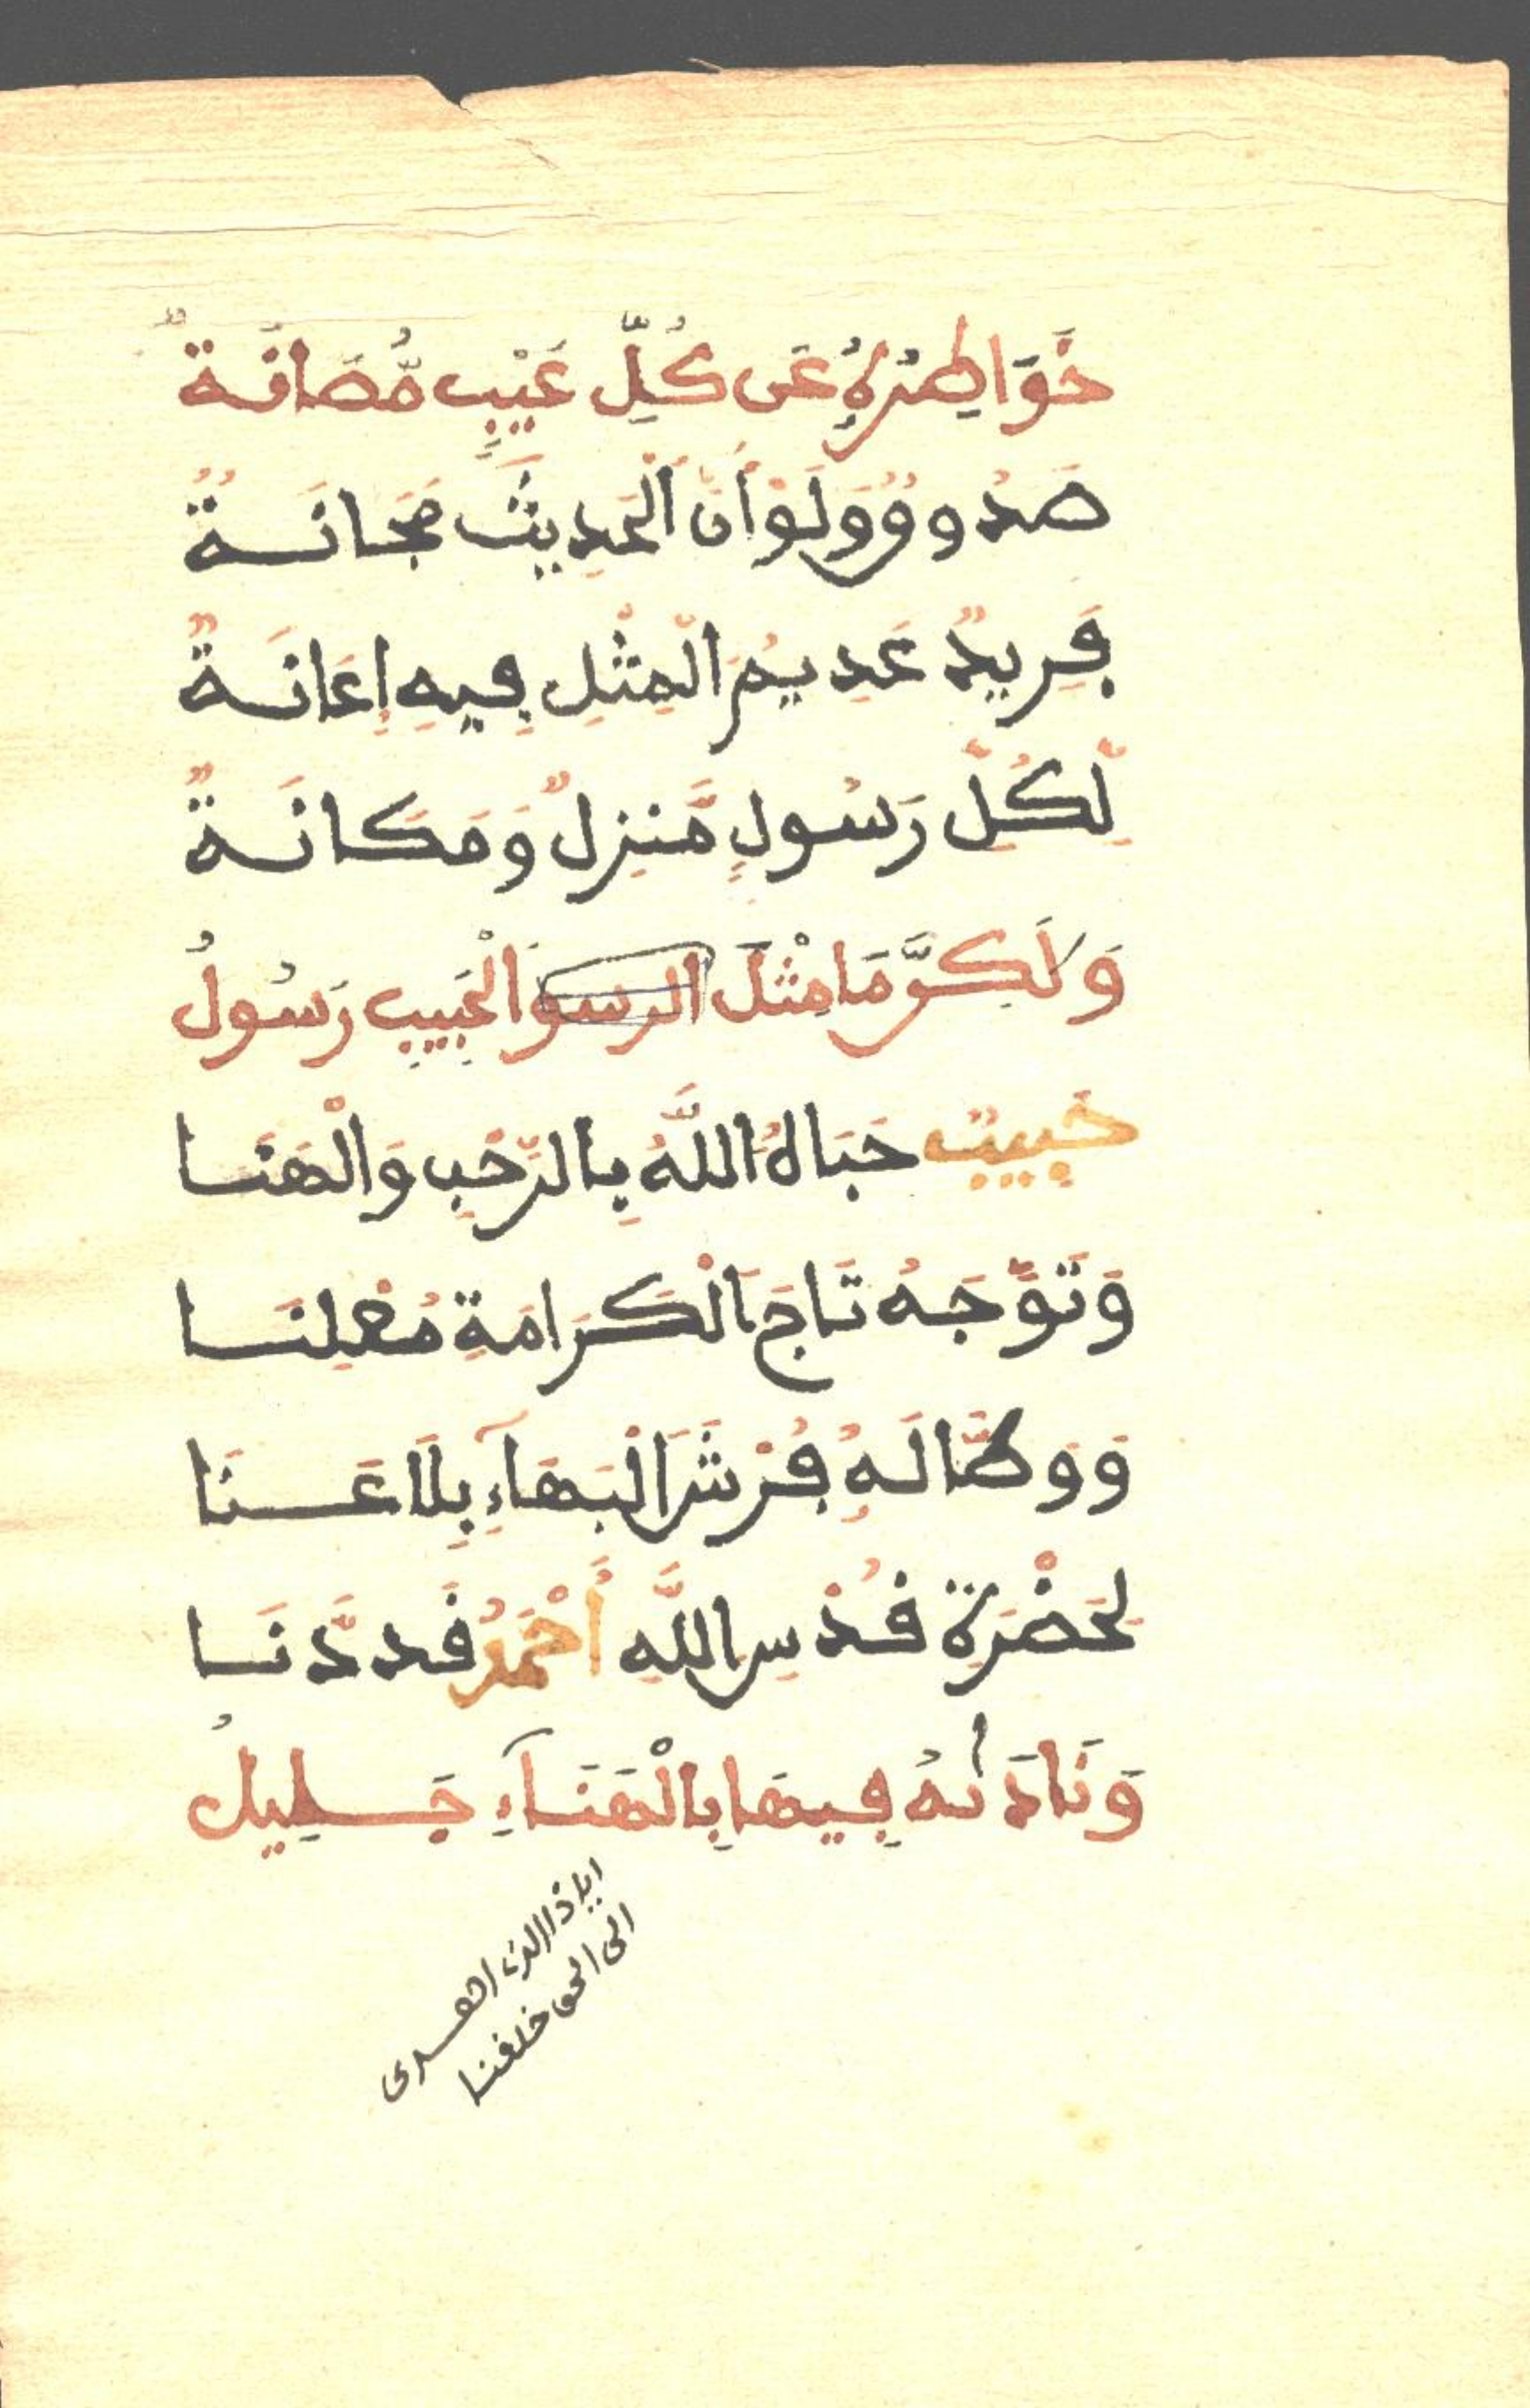 خَوَاطِرُهُ عَن كُلِّ عَيْبٍ مُّصَانَةٌ
صَدُوقٌ وَلَوْ أَنَّ الْحَدِيثَ مَجَانَةٌ
فَرِيدٌ عَدِيمُ الْمِثْلِ فِيهِ إِعَانَةٌ
لِّكُلِّ رَسُولٍ مَّنزِلٌ وَمَكَانَةٌ
وَلَكِنَّ مَا مِثْلَ الرسو الْحَبِيبِ رَسُولُ
حَبِيبٌ حَبَاهُ اللَّهُ بِالرُّحْبِ وَالْهَنَا
وَتَوَّجَهُ تَاجَ الْكَرَامَةِ مُعْلِنَا
وَوَطَّا لَهُ فُرْشَ الْبَهَآءِ بِلَا عَنَا
لِحَضْرَةِ قُدْسِ اللَّهِ أَحْمَدُ قَد دَّنَا
وَنَادَاهُ فِيهَا بِالْهَنَآءِ جَلِيلُ
ايا ذا الذي اهدى
الى الحق خلقنا